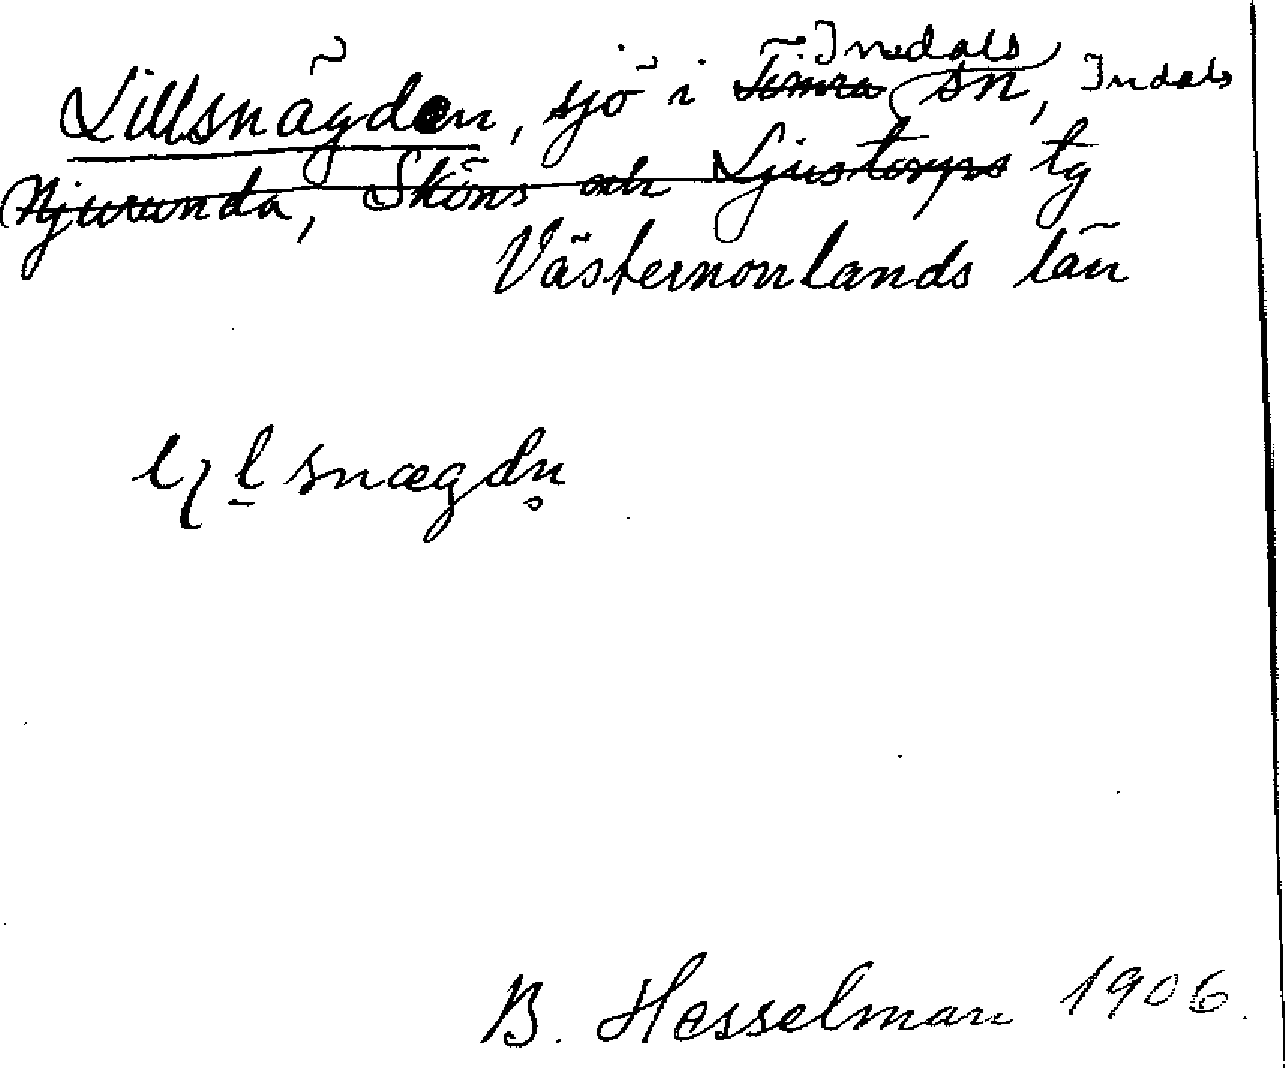 Lillsnägden, sjö i Timrå Indals sn, Indals
Njurunda, Sköns och Ljustorps tg
Västernorrlands län
snægdn̥
B. Hesselman 1906.